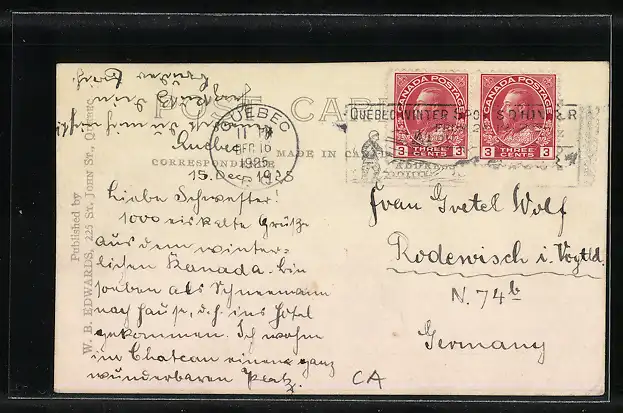 POST CARD
CORRESPONDENCE
MADE IN CANADA
ADDRESS
Published by
W. B. EDWARDS, 225 St. JOHN St., QUEBEC
QUEBEC
1925
P.Q.
QUEBEC WINTER SPORTS
CANADA POSTAGE
3 THREE CENTS 3
CANADA POSTAGE
3 THREE CENTS 3
Quebec
15. Dec. 1925
Liebe Schwester!
1000 eiskalte Grüße
aus dem winter-
lichen Kanada. Bin
soeben als Schneemann
nach Hause, d. h. ins Hotel
gekommen. Ich wohne
im Chateau einem ganz
wunderbaren Platz.
Frau Gretel Wolf
Rodewisch i. Vogtld.
N. 74b
Germany
CA